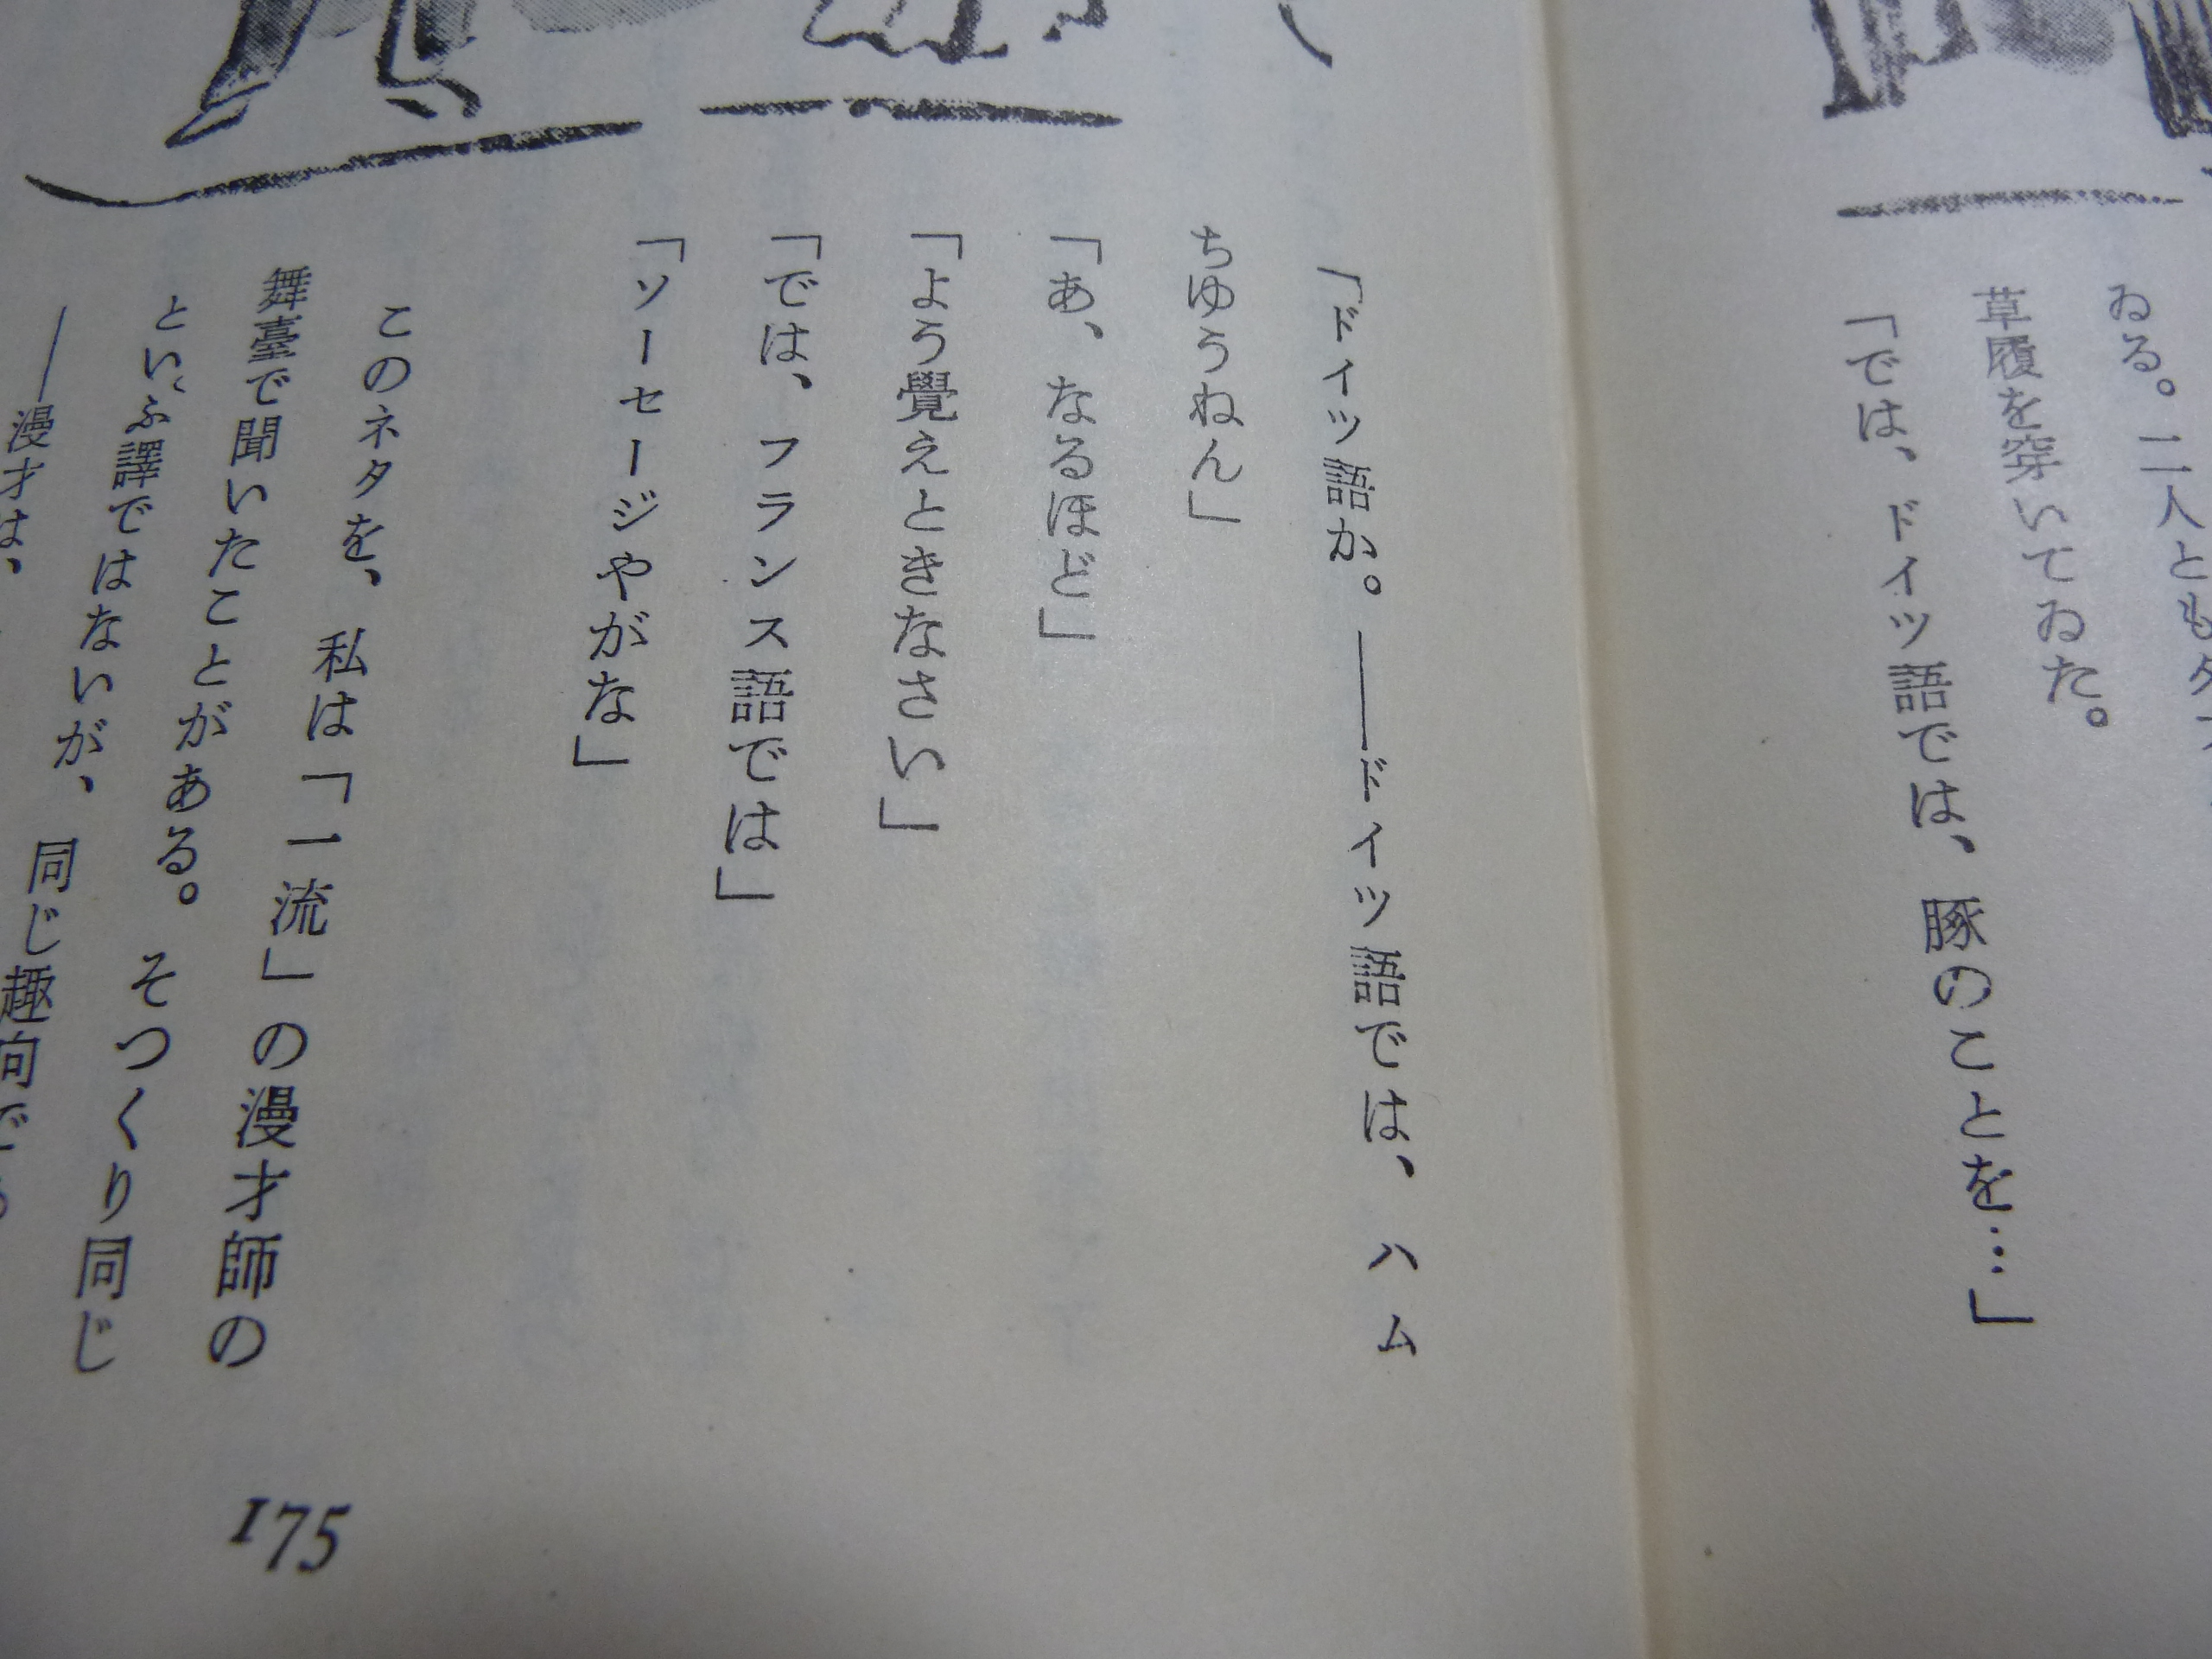 ゐる。二人とも
草履を穿いてゐた。
「では、ドイツ語では、豚のことを…」
「ドイツ語か。――ドイツ語では、ハム
ちゆうねん」
「あ、なるほど」
「よう覺えときなさい」
「では、フランス語では」
「ソーセージやがな」
このネタを、私は「一流」の漫才師の
舞臺で聞いたことがある。そつくり同じ
といふ譯ではないが、同じ趣向で
――漫才は、
175